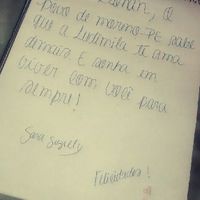 Renan, O
povo de marmo-PE sabe
que a Ludmila te ama
demais E sonha em
viver com você para
sempre!
Sara Suziely
Felicidades!